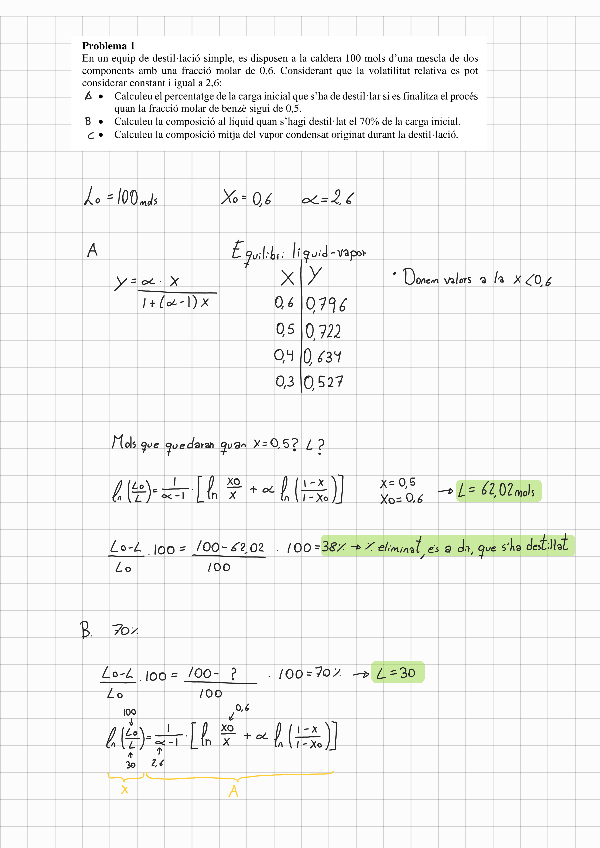 Problema 1
En un equip de destil·lació simple, es disposen a la caldera 100 mols d'una mescla de dos
components amb una fracció molar de 0,6. Considerant que la volatilitat relativa es pot
considerar constant i igual a 2,6:
A • Calculeu el percentatge de la carga inicial que s'ha de destil·lar si es finalitza el procés
quan la fracció molar de benzè sigui de 0,5.
B • Calculeu la composició al líquid quan s'hagi destil·lat el 70% de la carga inicial.
C • Calculeu la composició mitja del vapor condensat originat durant la destil·lació.
L₀ = 100 mols X₀ = 0,6 α = 2,6
A Equilibri líquid-vapor
y = α · x / 1 + (α-1) x
X | Y
• Donem valors a la x < 0,6
0,6 | 0,796
0,5 | 0,722
0,4 | 0,634
0,3 | 0,527
Mols que quedaran quan x=0,5? L?
ln (L₀/L) = 1/α-1 · [ ln x₀/x + α ln (1-x/1-x₀) ] x=0,5 x₀=0,6 → L = 62,02 mols
L₀-L/L₀ · 100 = 100-62,02/100 · 100 = 38% → % eliminat, es a dir, que s'ha destil·lat
B. 70%
L₀-L/L₀ · 100 = 100 - ?/100 · 100 = 70% → L = 30
100 0,6
ln (L₀/L) = 1/α-1 · [ ln x₀/x + α ln (1-x/1-x₀) ]
30 2,6
X A